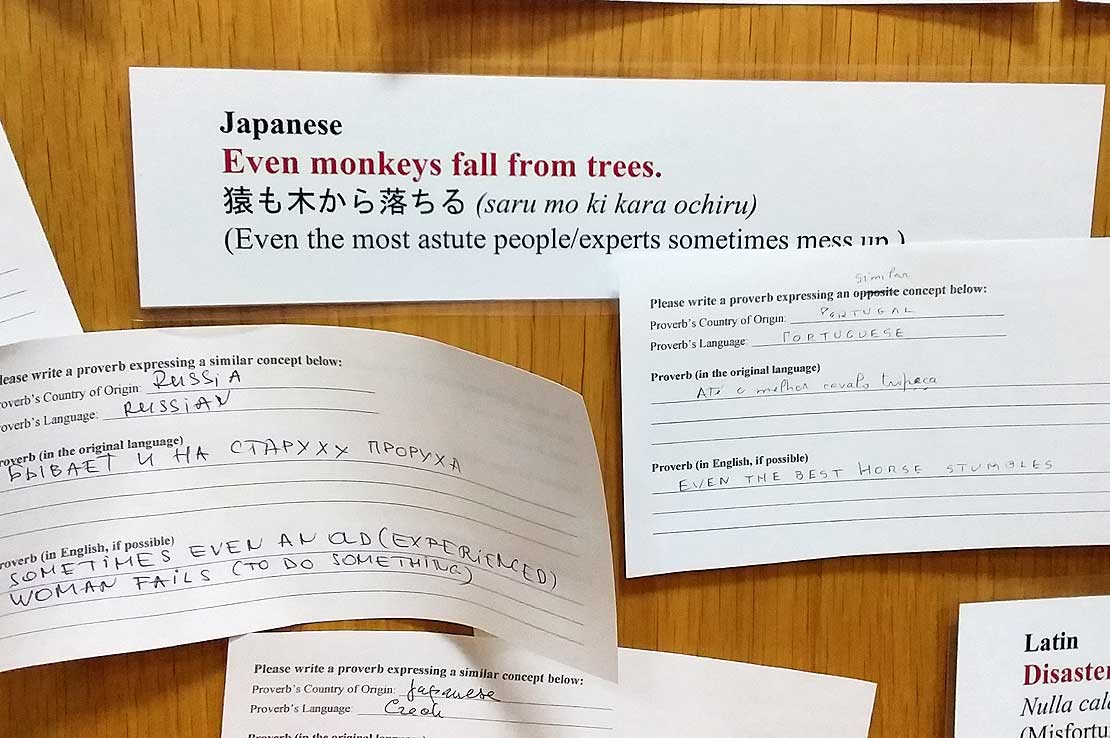 Japanese
Even monkeys fall from trees.
猿も木から落ちる (saru mo ki kara ochiru)
(Even the most astute people/experts sometimes mess up.)
similar
Please write a proverb expressing an opposite concept below:
Proverb's Country of Origin: PORTUGAL
Proverb's Language: PORTUGUESE
Proverb (in the original language)
Até o melhor cavalo tropeça
Proverb (in English, if possible)
EVEN THE BEST HORSE STUMBLES
lease write a proverb expressing a similar concept below:
roverb's Country of Origin: RUSSIA
roverb's Language: RUSSIAN
roverb (in the original language)
БЫВАЕТ И НА СТАРУХУ ПРОРУХА
roverb (in English, if possible)
SOMETIMES EVEN AN OLD (EXPERIENCED)
WOMAN FAILS (TO DO SOMETHING)
Please write a proverb expressing a similar concept below:
Proverb's Country of Origin: Japanese
Proverb's Language: Czech
Proverb (in the original language)
Latin
Disaster
Nulla cal
(Misfortu